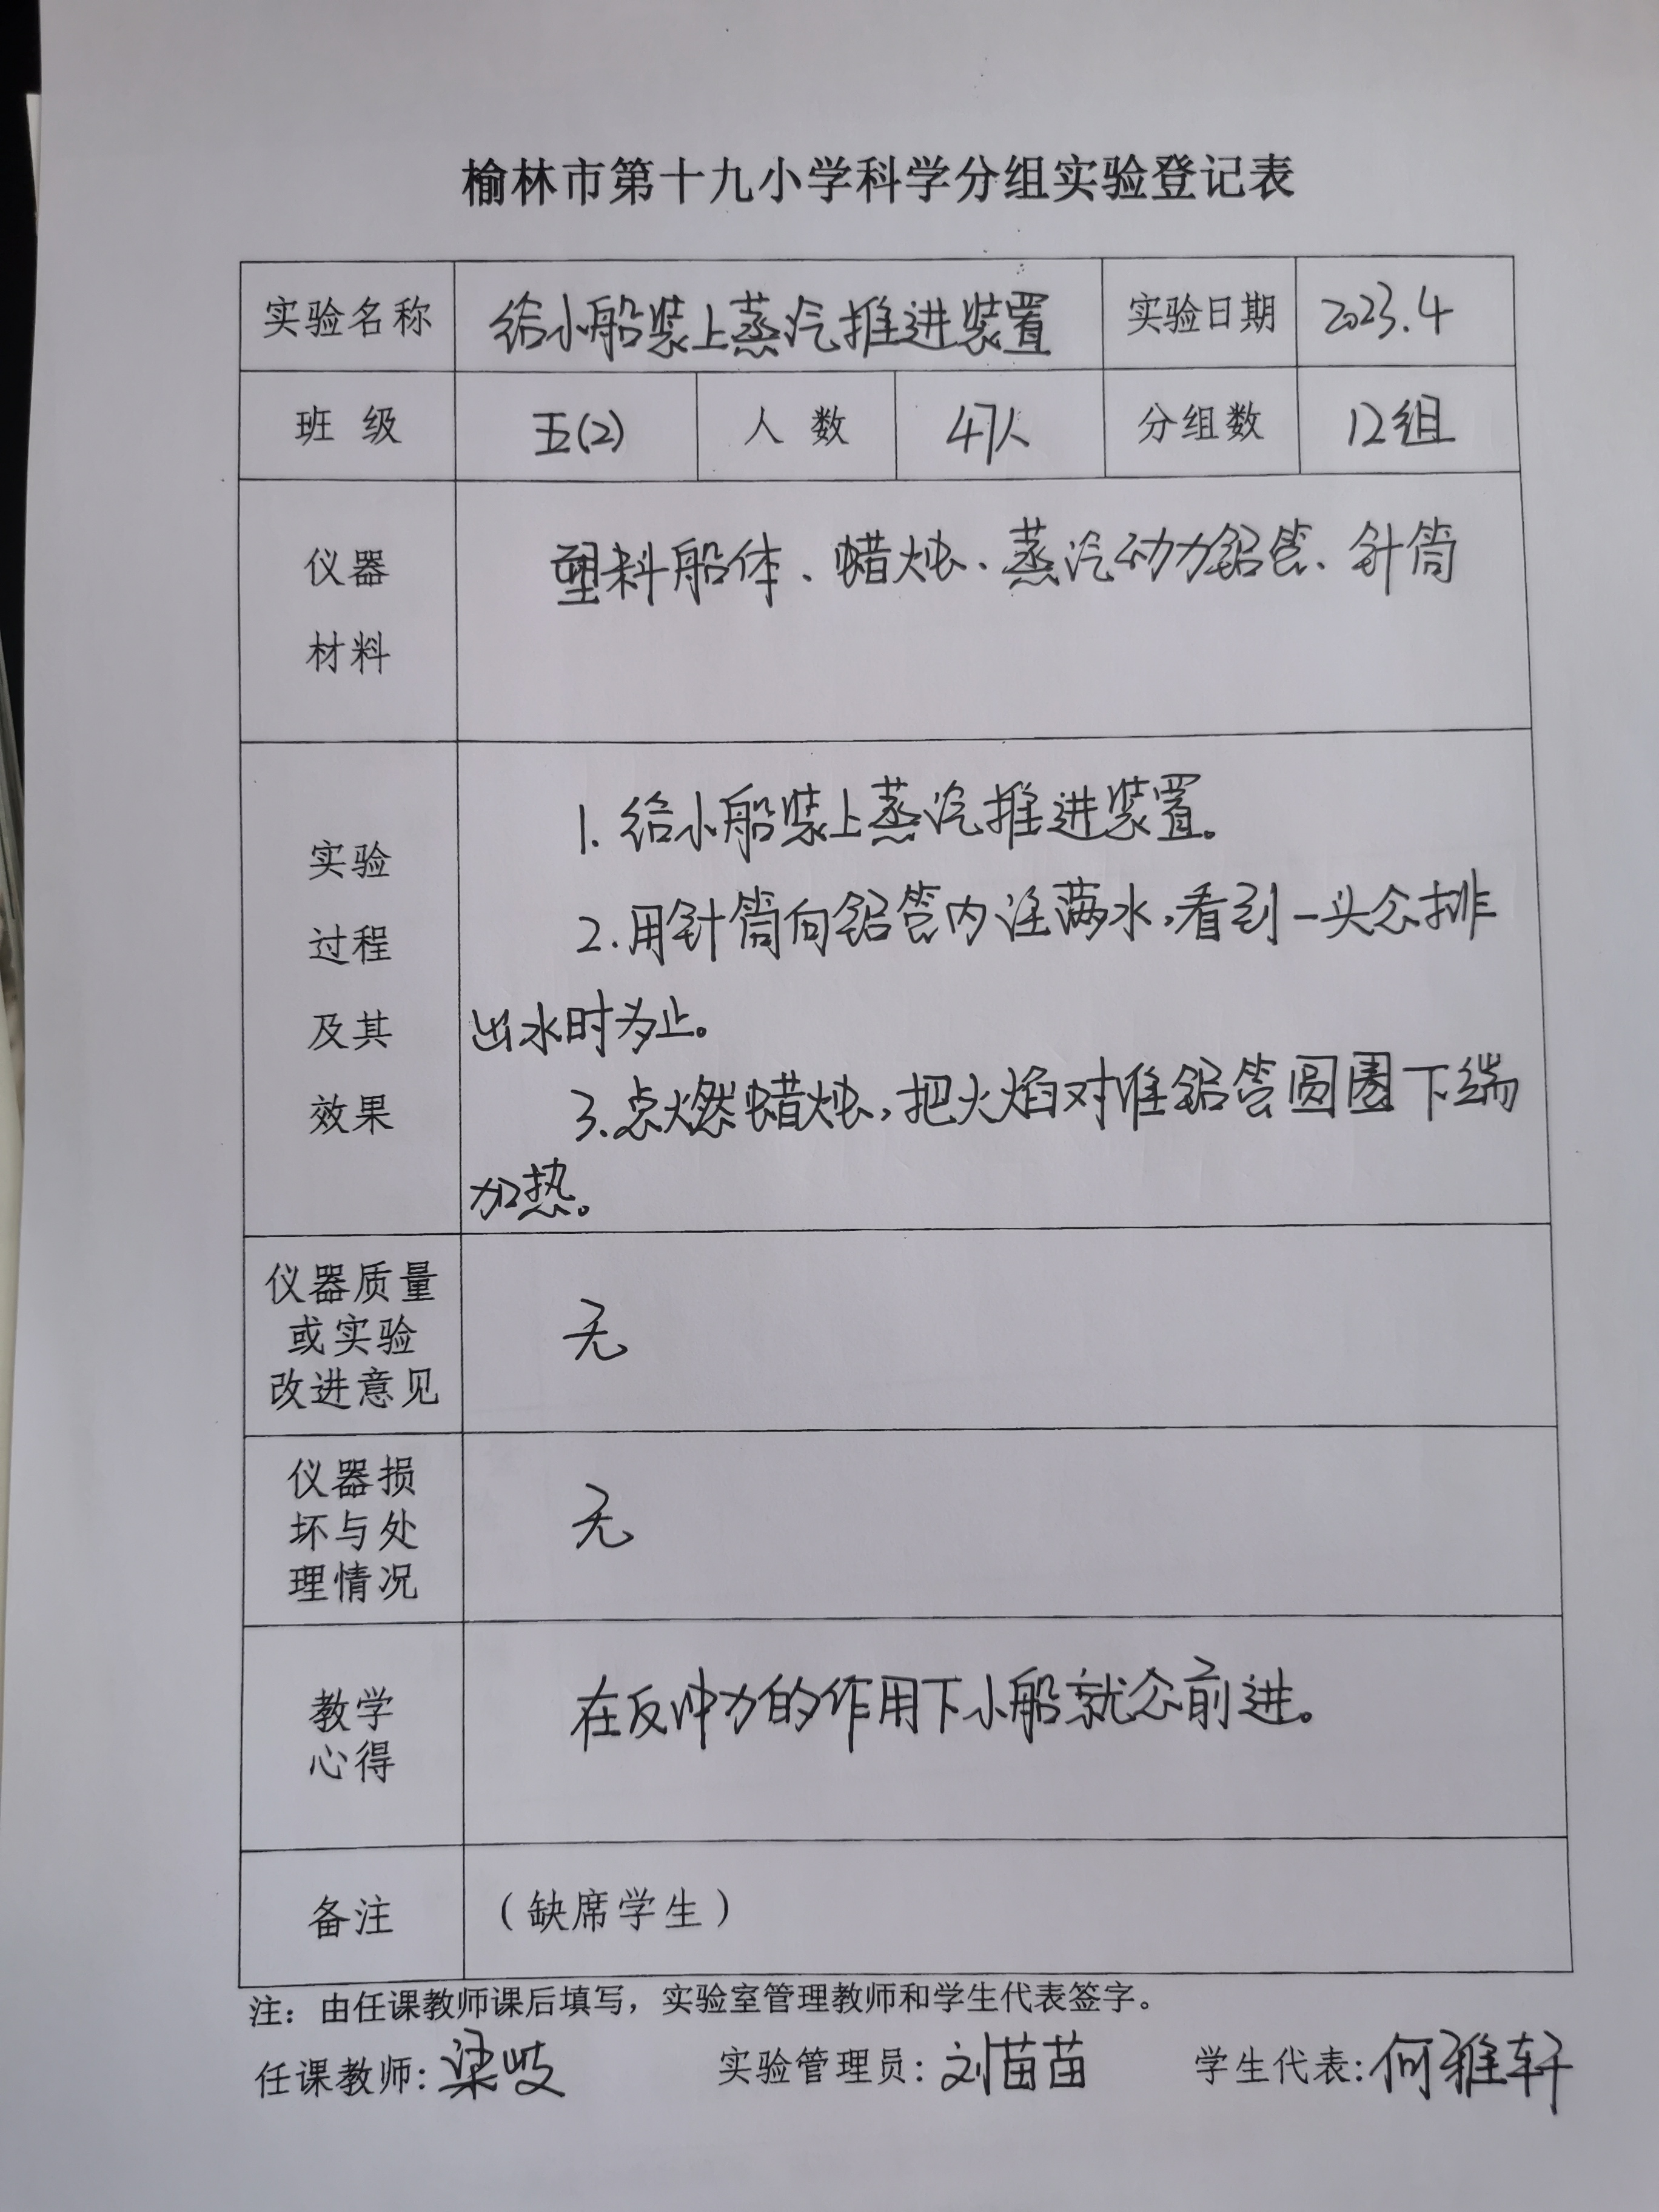 榆林市第十九小学科学分组实验登记表
实验名称 给小船装上蒸汽推进装置 实验日期 2023.4
班 级 五(2) 人 数 47人 分组数 12组
仪器 塑料船体、蜡烛、蒸汽动力铝管、针筒
材料
1. 给小船装上蒸汽推进装置。
实验
2. 用针筒向铝管内注满水,看到一头会排
过程
及其 出水时为止。
效果 3. 点燃蜡烛,把火焰对准铝管圆圈下端
加热。
仪器质量
或实验 无
改进意见
仪器损
坏与处 无
理情况
教学 在反冲力的作用下小船就会前进。
心得
备注 (缺席学生)
注:由任课教师课后填写,实验室管理教师和学生代表签字。
任课教师: 梁岐 实验管理员: 刘苗苗 学生代表: 何雅轩